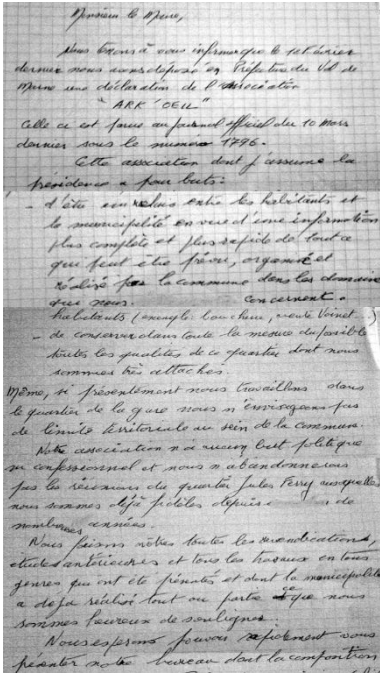 Monsieur le Maire,
nous tenons à vous informer que le 12 Février
dernier nous avons déposé en Préfecture du Val de
Marne une déclaration de l'association
"ARK'OEIL"
Celle ci est parue au journal officiel du 10 Mars
dernier sous le numéro 1796.
Cette association dont j'assume la
présidence a pour buts:
- d'être un relais entre les habitants et
la municipalité en vue d'une information
plus complète et plus rapide de tout ce
qui peut être prévu, organisé et
réalisé par la commune dans les domaines
que nous concernent.
habitants (exemple: , vente Voinet..)
- de conserver dans toute la mesure du possible
toutes les qualités de ce quartier dont nous
sommes très attachés.
Même, si présentement nous travaillons dans
le quartier de la gare nous n'envisageons pas
de limite territoriale au sein de la commune.
Notre association n'a aucun but politique
ni confessionnel et nous n'abandonnerons
pas les réunions du quartier Jules Ferry auxquelles
nous sommes déjà fidèles depuis de
nombreuses années.
Nous faisons nôtres toutes les revendications,
études antérieures et tous les travaux en tous
genres qui ont été présentés et dont la municipalité
a déjà réalisé tout ou partie ce que nous
sommes heureux de souligner.
Nous espérons pouvoir rapidement vous
présenter notre bureau dont la composition